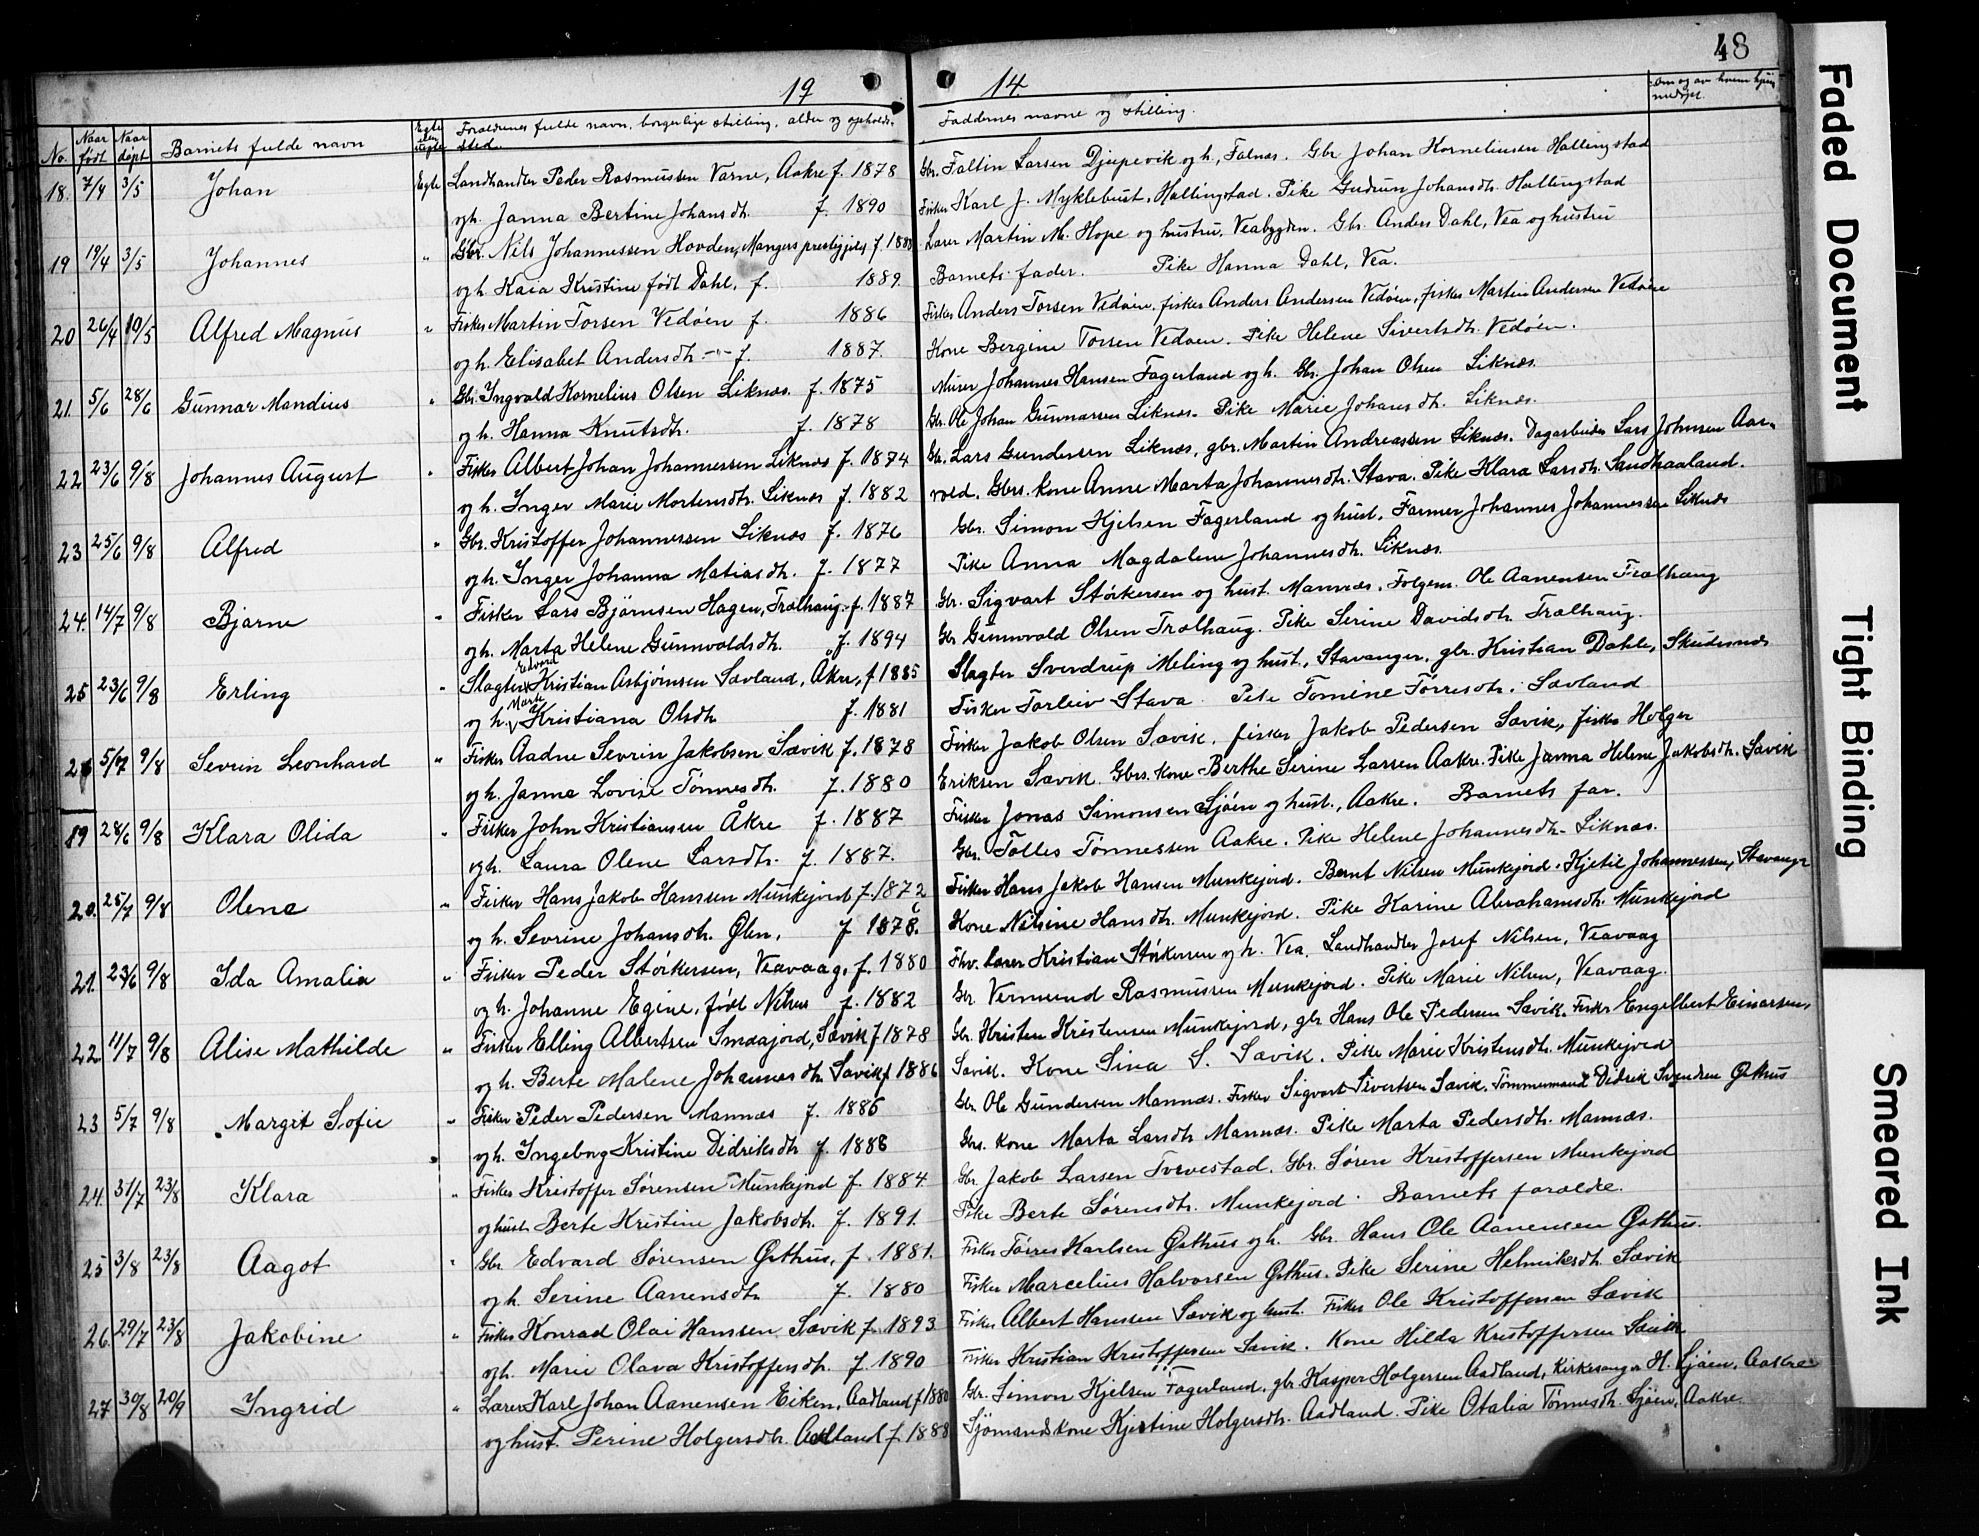 48
19 14.
No. Naar født Naar døpt Barnets fulde navn Egte eller uegte Forældrenes fulde navn, borgerlige stilling, alder og opholdssted. Faddernes navne og stilling.
18. 7/4 3/5 Johan Egte Landhandler Peder Rasmussen Varne, Aakre f. 1878 Gbr. Faltin Larsen Djupevik og h., Falnæs. Gbr Johan Korneliusen Hallingstad
og h. Janna Bertine Johansdtr. f. 1890 Fisker Karl J. Myklebust, Hallingstad. Pike Gudrun Johansdtr. Hallingstad
19 19/4 3/5 Johannes " Gbr. Nils Johannessen Hovden, Mangers prestegjeld, f. 1888 Lærer Martin M. Hope og hustru, Veabygden. Gbr. Anders Dahl, Vea og hustru
og h. Kaia Kristine født Dahl, f. 1889. Barnets fader. Pike Hanna Dahl, Vea.
20 26/4 10/5 Alfred Magnus " Fisker Martin Torsen Vedøen f. 1886 Fisker Anders Torsen Vedøen, fisker Anders Andersen Vedøen, fisker Martin Andersen Vedøen
og h. Elisabet Andersdtr. -"- f. 1887. Kone Bergine Torsen Vedøen. Pike Helene Sivertsdtr. Vedøen.
21. 5/6 28/6 Gunnar Mandius " Gbr. Ingvald Kornelius Olsen Liknæs. f. 1875 Murer Johannes Hansen Fagerland og h. Gbr. Johan Olsen Liknæs.
og h. Hanna Knutsdtr. f. 1878 Gbr. Ole Johan Gunnarsen Liknæs. Pike Marie Johansdtr. Liknæs.
22 23/6 9/8 Johannes August " Fisker Albert Johan Johannessen Liknæs f. 1874 Gbr. Lars Gundersen Liknæs, gbr. Martin Andreassen Liknæs. Dagarbeider Lars Johnsen Aar-
og h. Inger Marie Mortensdtr. Liknæs f. 1882 vold. Gbrs. kone Anne Marta Johannesdtr. Stava. Pike Klara Larsdtr. Sandhaaland.
23 25/6 9/8 Alfred " Gbr. Kristoffer Johannessen Liknæs f. 1876 Gbr. Simon Kjelsen Fagerland og hust. Farmer Johannes Johannessen Liknæs
og h. Inger Johanna Matiasdtr. f. 1877 Pike Anna Magdalene Johannesdtr. Liknæs.
24. 14/7 9/8 Bjarne " Fisker Lars Bjørnsen Hagen, Trælhaug. f. 1887 Gbr. Sigvart Størkersen og hust. Mannæs. Folgem. Ole Aanensen Trælhaug
og h. Marta Helene Gunnvaldsdtr. f. 1894 Gbr Gunnvald Olsen Trælhaug. Pike Serine Davidsdtr. Trælhaug.
25 23/6 9/8 Erling " Slagter Edvard Kristian Asbjørnsen Sævland, Åkre, f 1885 Slagter Sverdrup Meling og hust., Stavanger, gbr. Kristian Dahle, Skudesnæs
og h. Marte Kristiana Olsdtr f. 1881 Fisker Torleiv Stava. Pike Tomine Tørresdtr. Sævland
26 5/7 9/8 Sevrin Leonhard " Fisker Aadne Sevrin Jakobsen Sævik f. 1878 Fisker Jakob Olsen Sævik, fisker Jakob Pedersen Sævik, fisker Holger
og h. Janna Lovise Tønnesdtr. f. 1880 Eriksen Sævik. Gbrs. kone Berthe Serine Larsen Aakre. Pike Janna Helene Jakobsdtr. Sævik
19 28/6 9/8 Klara Olida " Fisker John Kristiansen Åkre f. 1887 Fisker Jonas Simonsen Sjøen og hust., Aakre. Barnets far.
og h. Laura Olene Larsdtr. f. 1887. Gbr. Tølles Tønnessen Aakre. Pike Helene Johannesdtr. Liknæs.
20. 25/7 9/8 Olene " Fisker Hans Jakob Hanssen Munkejord f. 1872 Fisker Hans Jakob Hansen Munkejord. Bernt Nilsen Munkejord. Kjetil Johannessen, Stavanger
og h. Sevrine Johansdtr. Ølen. f 1878. Kone Nilsine Hansdtr. Munkejord. Pike Karine Abrahamsdtr. Munkejord
21. 23/6 9/8 Ida Amalia " Fisker Peder Størkersen, Veavaag, f. 1880 Fhv. lærer Kristian Størkersen og h. Vea. Landhandler Josef Nilsen, Veavaag
og h. Johanne Egine, født Nilsen f. 1882 Gbr Vermund Rasmussen Munkejord. Pike Marie Nilsen, Veavaag.
22. 11/7 9/8 Alise Mathilde " Fisker Elling Albertsen Smaajord, Sævik f 1878 Gbr. Kristen Kristensen Munkejord, gbr Hans Ole Pedersen Sævik. Fisker Engelbert Einarsen,
og h. Berte Malene Johannesdtr. Sævik f 1886 Sævik. Kone Sina S. Sævik. Pike Marie Kristensdtr. Munkejord
23 5/7 9/8 Margit Sofie " Fisker Peder Pedersen Mannæs f. 1885 Gbr Ole Gundersen Mannæs. Fisker Sigvart Sivertsen Sævik. Tømmermand Didrik Svendsen Østhus
og h. Ingeborg Kristine Didriksdtr. f. 1888 Gbrs. kone Marta Larsdtr. Mannæs. Pike Marta Pedersdtr. Mannæs.
24. 31/7 23/8 Klara " Fisker Kristoffer Sørensen Munkejord f. 1884. Gbr Jakob Larsen Tvevestad. Gbr. Søren Kristoffersen Munkejord
og hust. Berte Kristine Jakobsdtr. f. 1891. Pike Berte Sørensdtr. Munkejord. Barnets forældre.
25 3/8 23/8 Aagot " Gbr Edvard Sørensen Østhus, f. 1881. Fisker Tørres Karlsen Østhus og h. Gbr. Hans Ole Aanensen Østhus.
og h. Serine Aanensdtr. f. 1880 Fisker Marcelius Halvorsen Østhus. Pike Serine Helmiksdtr. Sævik
26 29/7 23/8 Jakobine " Fisker Konrad Olai Hanssen Sævik f. 1893 Fisker Albert Hanssen Sævik og hust. Fisker Ole Kristoffersen Sævik
og h. Marie Olava Kristoffersdtr. f 1890 Fisker Kristian Kristoffersen Sævik. Kone Hilda Kristoffersen Sævik
27 30/8 20/9 Ingrid " Lærer Karl Johan Aanensen Eiken, Aadland f 1880 Gbr. Simon Kjelsen Fagerland, gbr. Kasper Holgersen Aadland, Kirkesanger H. Sjøen, Aakre
og hust. Perine Holgersdtr. Aadland f. 1888 Sjømands kone Kjerstine Holgersdtr. Aadland. Pike Otalia Tønnesdtr. Sjøen, Aakre.
Faded Document
Tight Binding
Smeared Ink